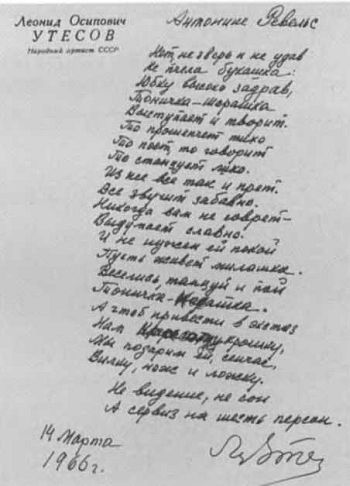 Леонид Осипович
УТЕСОВ
Народный артист СССР
Антонине Ревельс
Нет, не зверь и не удав
Не пчела букашка:
Юбку высоко задрав,
Тоничка-
Выступает и творит.
То прошепчет тихо
То поет, то говорит
То станцует лихо.
Из нее все так и прет.
Все звучит забавно.
Никогда вам не соврет-
Выдумает славно.
И не нужен ей покой
Пусть живет милашка.
Веселись, танцуй и пой
Тоничка-
А чтоб привести в экстаз
Нам крошку,
Мы подарим ей, сейчас,
Вилку, нож и ложку.
Не видение, не сон
А сервиз на шесть персон.
14 Марта
1966 г.